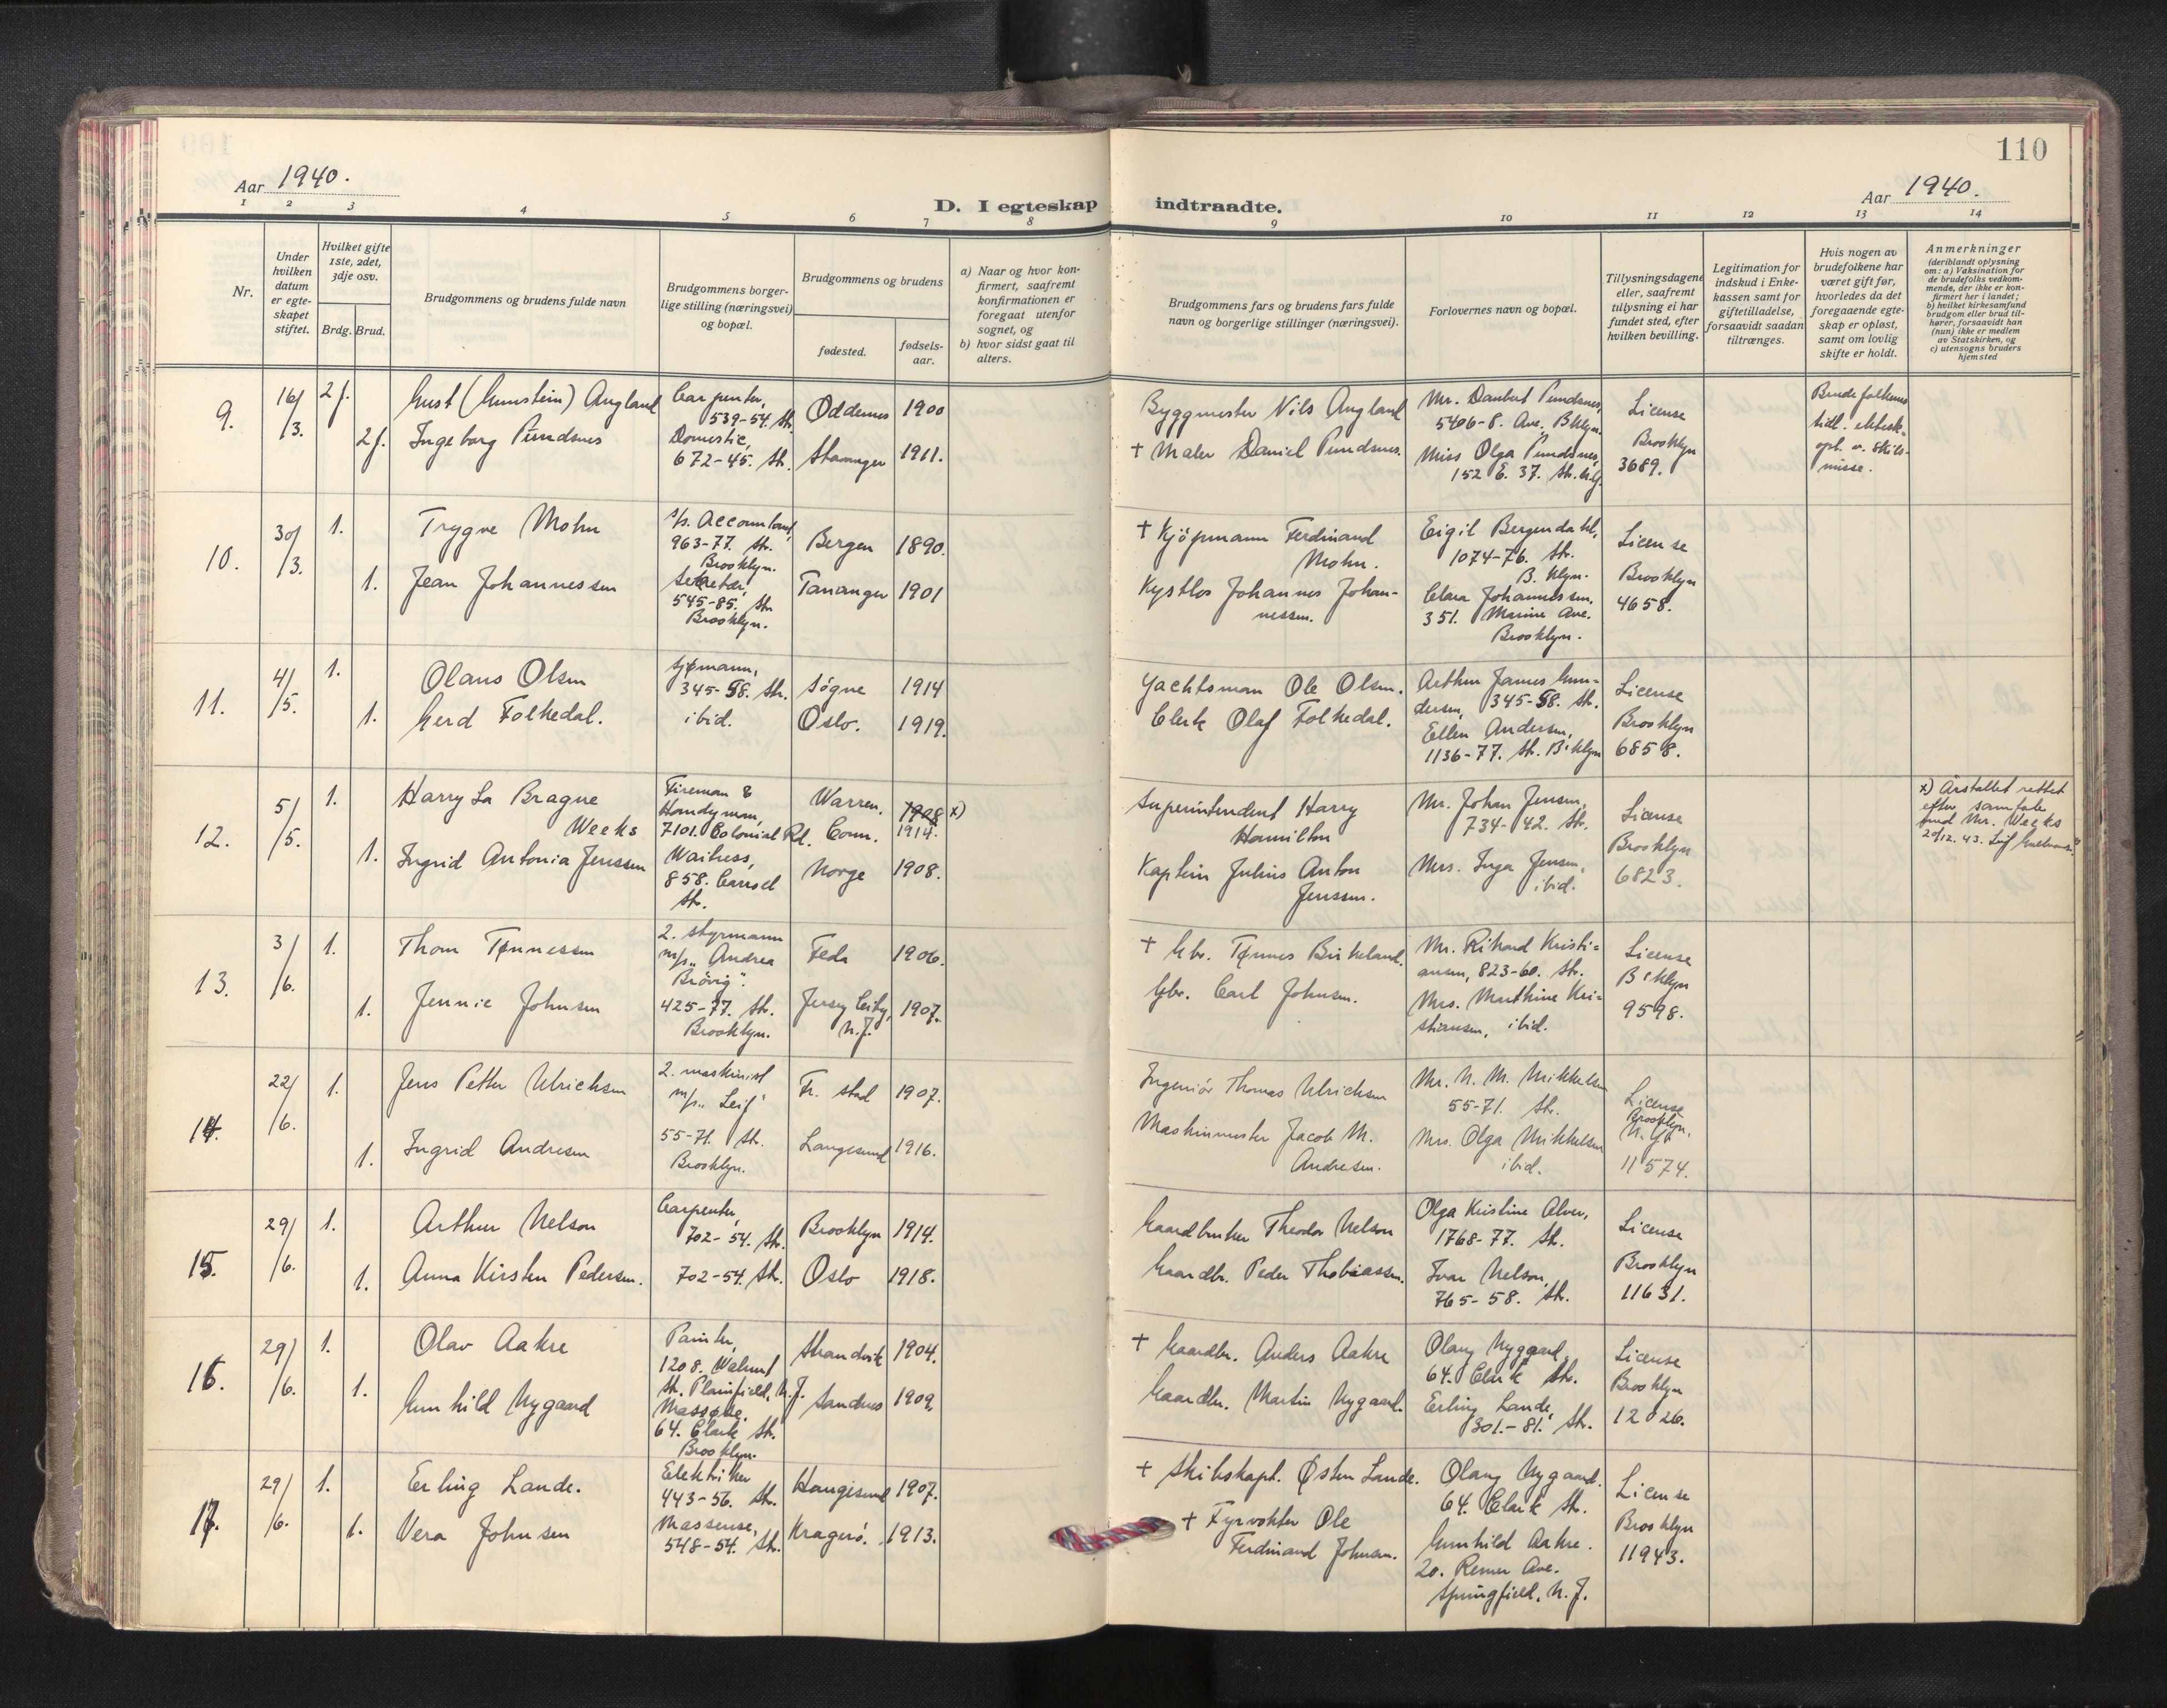 110
Aar 1940.
Aar 1940.
D. I egteskap indtraadte.
1 2 3 4 5 6 7 8 9 10 11 12 13 14
Nr.
Under
hvilken
datum
er egte-
skapet
stiftet.
Hvilket gifte
1ste, 2det,
3dje osv.
Brdg. Brud.
Brudgommens og brudens fulde navn
Brudgommens borger-
lige stilling (næringsvei)
og bopæl.
Brudgommens og brudens
fødested.
fødsels-
aar.
a) Naar og hvor kon-
firmert, saafremt
konfirmationen er
foregaat utenfor
sognet, og
b) hvor sidst gaat til
alters.
Brudgommens fars og brudens fars fulde
navn og borgerlige stillinger (næringsvei).
Forlovernes navn og bopæl.
Tillysningsdagene
eller, saafremt
tilysning ei har
fundet sted, efter
hvilken bevilling.
Legitimation for
indskud i Enke-
kassen samt for
giftetilladelse,
forsaavidt saadan
tiltrænges.
Hvis nogen av
brudefolkene har
været gift før,
hvorledes da det
foregaaende egte-
skap er opløst,
samt om lovlig
skifte er holdt.
Anmerkninger
(deriblandt oplysning
om: a) Vaksination for
de brudefolks vedkom-
mende, der ikke er kon-
firmert her i landet;
b) hvilket kirkesamfund
brudgom eller brud til-
hører, forsaavidt han
(hun) ikke er medlem
av Statskirken, og
c) utensogns bruders
hjemsted
9.
16/
/3.
2 f.
2 f.
Gust (Gunstein) Augland
Ingeborg Pundsnes
Carpenter,
539-54. St.
Domestic,
672-45. St.
Oddernes 1900
Stavanger 1911.
Byggmester Nils Augland
+ Maler Daniel Pundsnes.
Mr. Daubert Pundsnes,
5406-8. Ave. Bklyn.
Miss Olga Pundsnes,
152 E. 37. St.
License
Brooklyn
3689.
Brudefolkenes
tidl. ektesk.
opl. v. skils-
misse.
10.
30/
/3.
1.
1.
Trygve Mohn
Jean Johannessen
s/s. Accountant,
963-77. St.
Brooklyn.
Sekretær,
545-85. St.
Brooklyn.
Bergen 1890.
Tananger 1901
+ Kjöpmann Ferdinand
Mohn.
Kystlos Johannes Johan-
nessen.
Eigil Bergendahl,
1074-76. St.
B. klyn.
Clara Johannessen,
351. Marine Ave.
Brooklyn.
License
Brooklyn
4658.
11.
4/
/5.
1.
1.
Olaus Olsen
Gerd Folkedal.
Sjømann,
345-58. St.
ibid.
Søgne 1914
Oslo. 1919.
Yachtsman Ole Olsen.
Clerk Olaf Folkedal.
Arthur James Gun-
dersen, 345-58. St.
Ellen Andersen,
1136-77. St. B'klyn
License
Brooklyn
6858.
12.
5/
/5.
1.
1.
Harry La Brague
Weeks
Ingrid Antonia Jenssen
Fireman &
Handyman,
7101. Colonial Rd.
Waitress,
858. Carroll
St.
Warren, 1908 x)
Conn. 1914.
Norge 1908.
Superintendent Harry
Hamilton
Kaptein Julius Anton
Jenssen.
Mr. Johan Jensen,
734-42. St.
Mrs. Inga Jensen,
ibid.
License
Brooklyn
6823.
x) Årstallet rettet
efter samtale
med Mr. Weeks
20/12. 43. Leif
13.
3/
/6.
1.
1.
Thom Tønnessen
Jennie Johnsen
2. styrmann
m/s „Andrea
Brövig".
425-77. St.
Brooklyn.
Feda 1906.
Jersey City,
N.J. 1907.
+ Gbr. Tønnes Birkeland.
Gbr. Carl Johnsen.
Mr. Rikard Kristi-
ansen, 823-60. St.
Mrs. Marthine Kri-
stiansen, ibid.
License
B'klyn
9598.
14.
22/
/6.
1.
1.
Jens Petter Ulrichsen
Ingrid Andresen
2. maskinist
m/s „Leif"
55-71. St.
Brooklyn.
Fr. stad 1907.
Langesund 1916.
Ingeniör Thomas Ulrichsen
Maskinmester Jacob M.
Andresen.
Mr. N. M. Mikkelsen
55-71. St.
Mrs. Olga Mikkelsen
ibid.
License
Brooklyn,
N.Y.
11574.
15.
29/
/6.
1.
1.
Arthur Nelson
Anna Kirsten Pedersen.
Carpenter,
702-54. St.
702-54. St.
Brooklyn 1914.
Oslo 1918.
Gaardbruker Theodor Nelson
Gaardbr. Peder Thobiassen.
Olga Kristine Alver,
1768-77. St.
Ivar Nelson,
765-58. St.
License
Brooklyn
11631.
16.
29/
/6.
1.
1.
Olav Aakre
Gunhild Nygaard
Painter,
1208. Walnut
St. Plainfield, N.J.
Massøse,
64. Clark St.
Brooklyn.
Strandvik 1904.
Sandnes 1909.
+ Gaardbr. Anders Aakre
Gaardbr. Martin Nygaard.
Olaug Nygaard,
64. Clark St.
Erling Lande,
301.-81. St.
License
Brooklyn
12026.
17.
29/
/6.
1.
1.
Erling Lande.
Vera Johnsen
Elektriker
443-56. St.
Massøse,
548-54. St.
Haugesund 1907.
Kragerö. 1913.
+ Skibskapt. Østen Lande.
+ Fyrvokter Ole
Ferdinand Johnsen.
Olaug Nygaard.
64. Clark St.
Gunhild Aakre.
20. Remer Ave.
Springfield, N.J.
License
Brooklyn
11943.